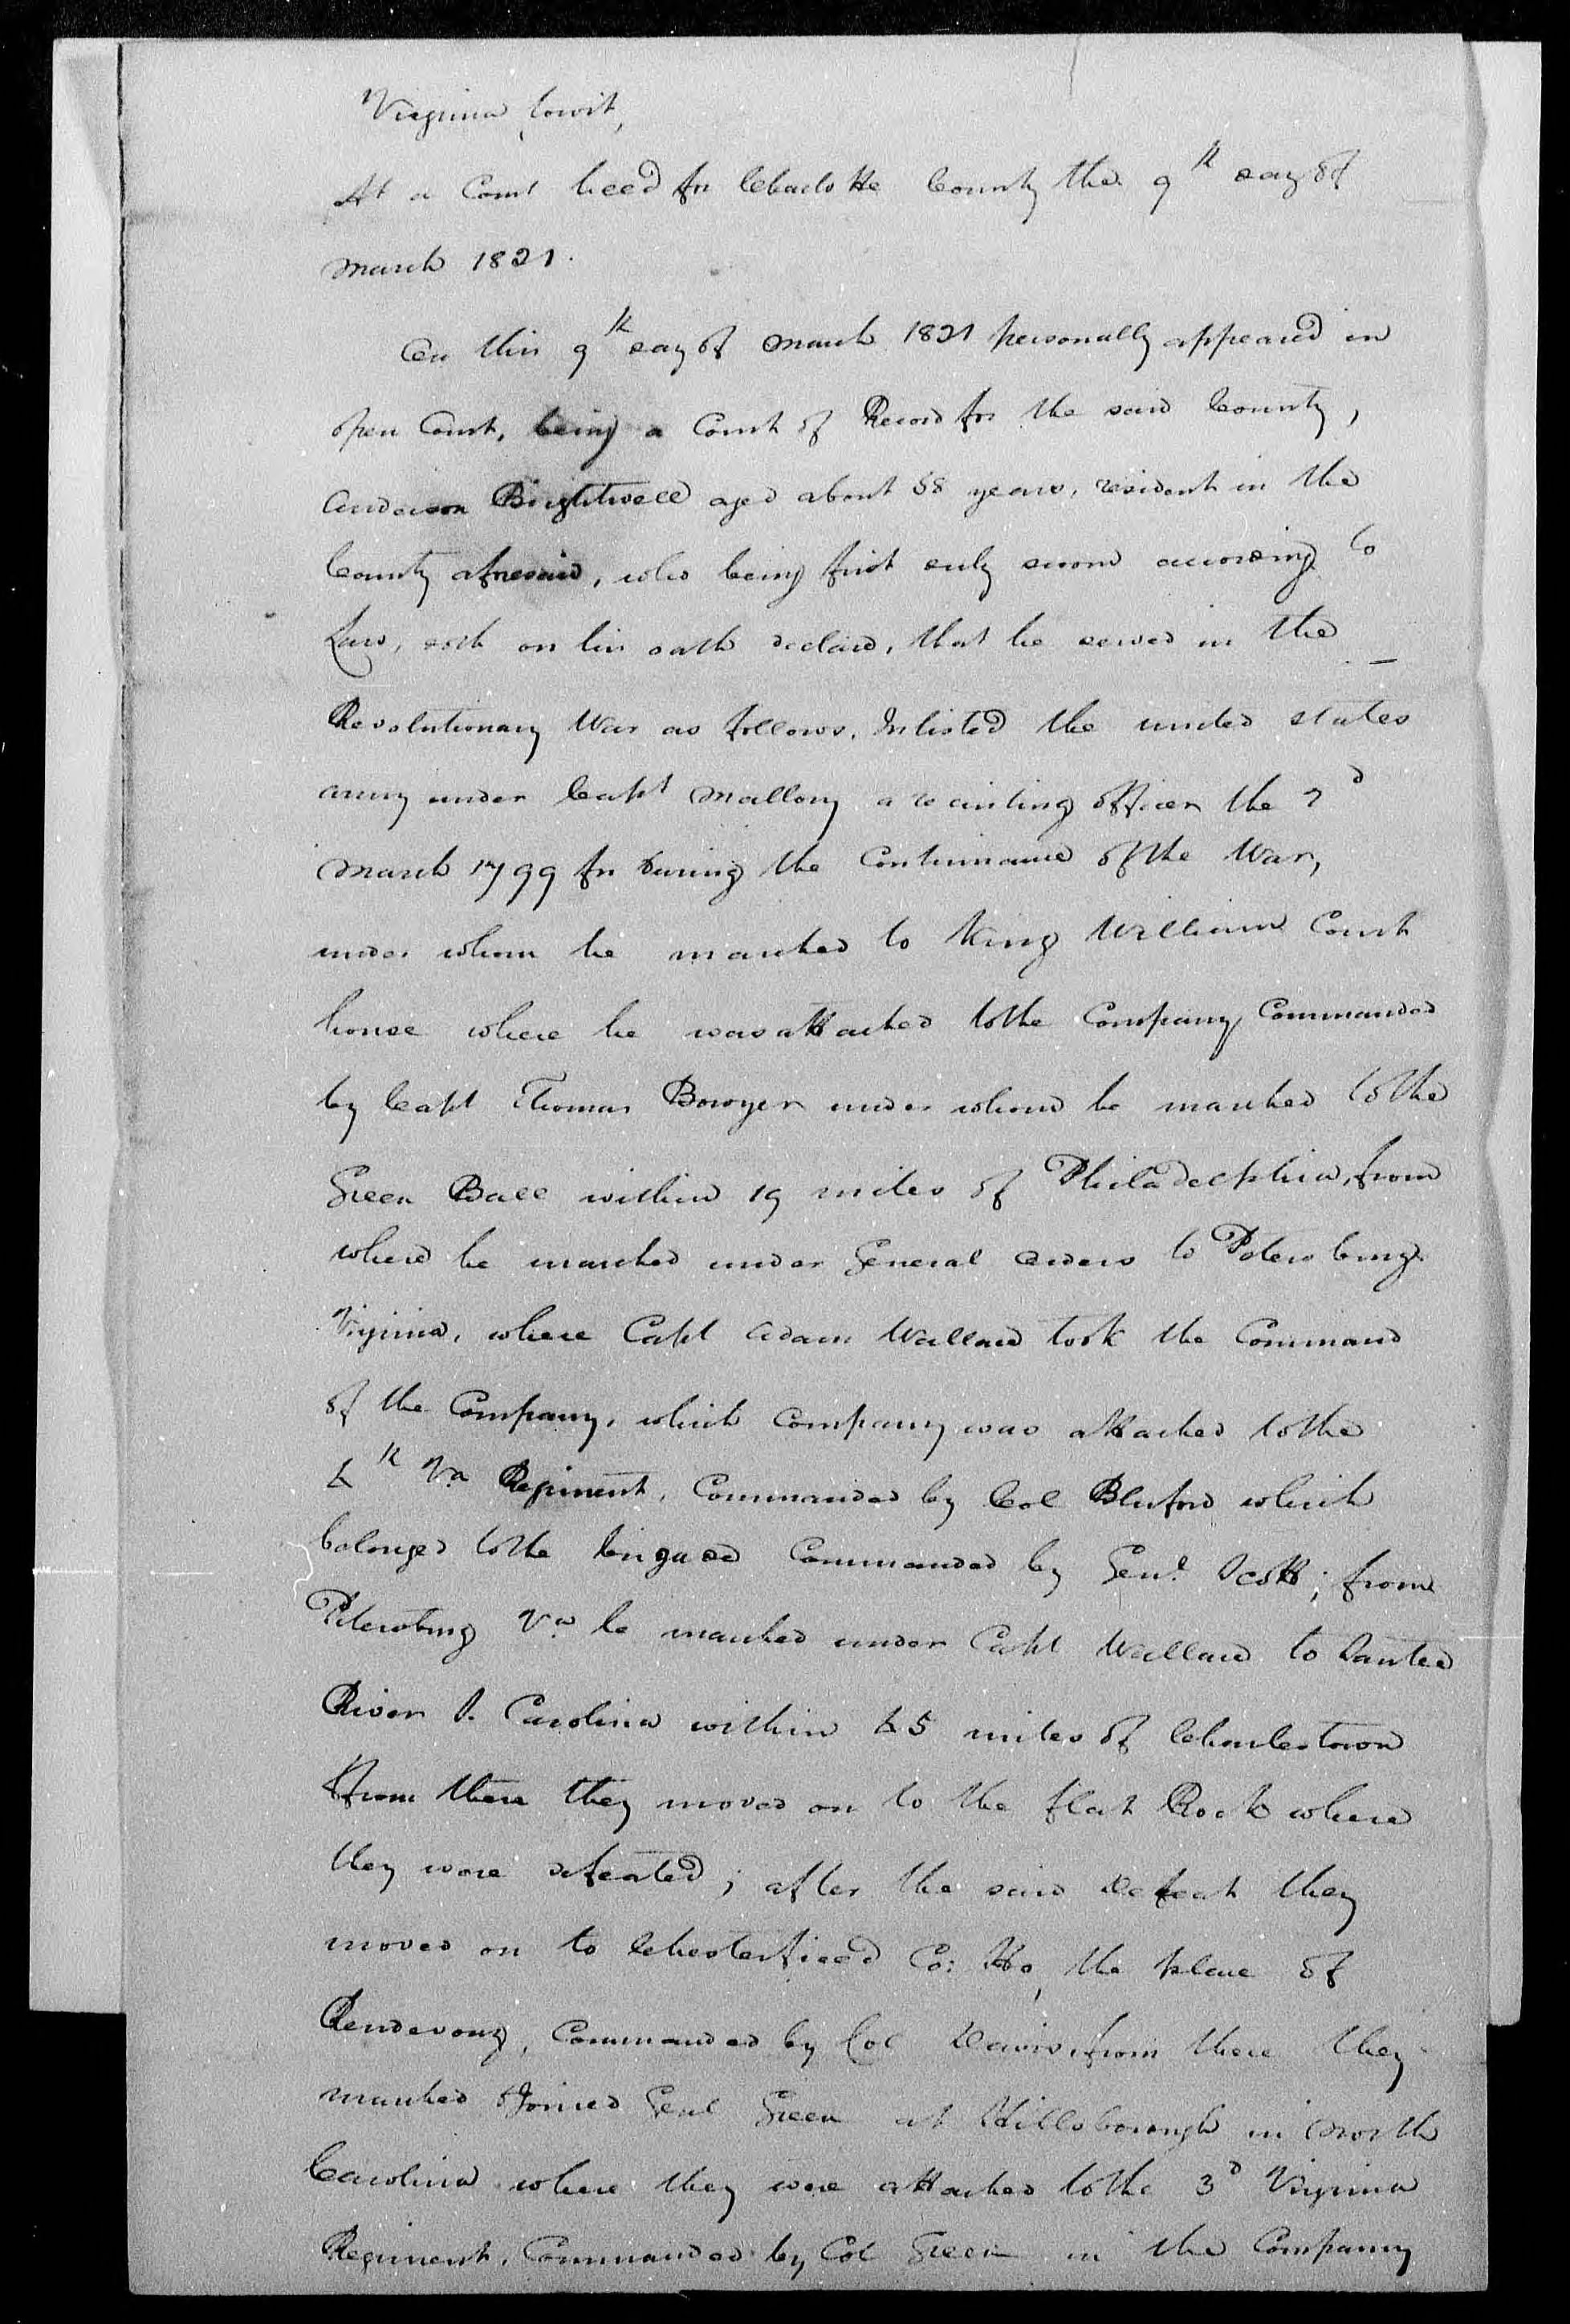 Virginia towit,
At a Court held for Charlotte County the 9th day of
March 1821.
On this 9th day of March 1821 personally appeared in
open Court, being a Court of Record for the said County,
Anderson Brightwell aged about 58 years, resident in the
County aforesaid, who being first duly sworn according to
Law, doth on his oath declare, that he served in the
Revolutionary War as follows. Inlisted the united states
army under Capt Mallory a recruiting officer the 2d
March 1779 for during the Continuance of the War,
under whom he marched to King William Court
house where he was attached to the Company Commanded
by Capt Thomas Bowyer under whom he marched to the
Green Ball within 19 miles of Philadelphia, from
where he marched under General orders to Petersburg
Virginia, where Capt Adam Wallace took the Command
of the Company, which Company was attached to the
4th Va Regiment, Commanded by Col Bluford which
belonged to the brigade Commanded by Genl Scott; from
Petersburg Va he marched under Capt Wallace to Santee
River S. Carolina within 45 miles of Charlestown
from there they moved on to the flat Rock where
they were defeated; after the said defeat they
moved on to Chesterfield Co: Ho, the place of
Rendevouz, Commanded by Col Davis, from there they
marched & Joined Genl Green at Hillsborough in North
Carolina where they were attached to the 3d Virginia
Regiment, Commanded by Col Green in the Company